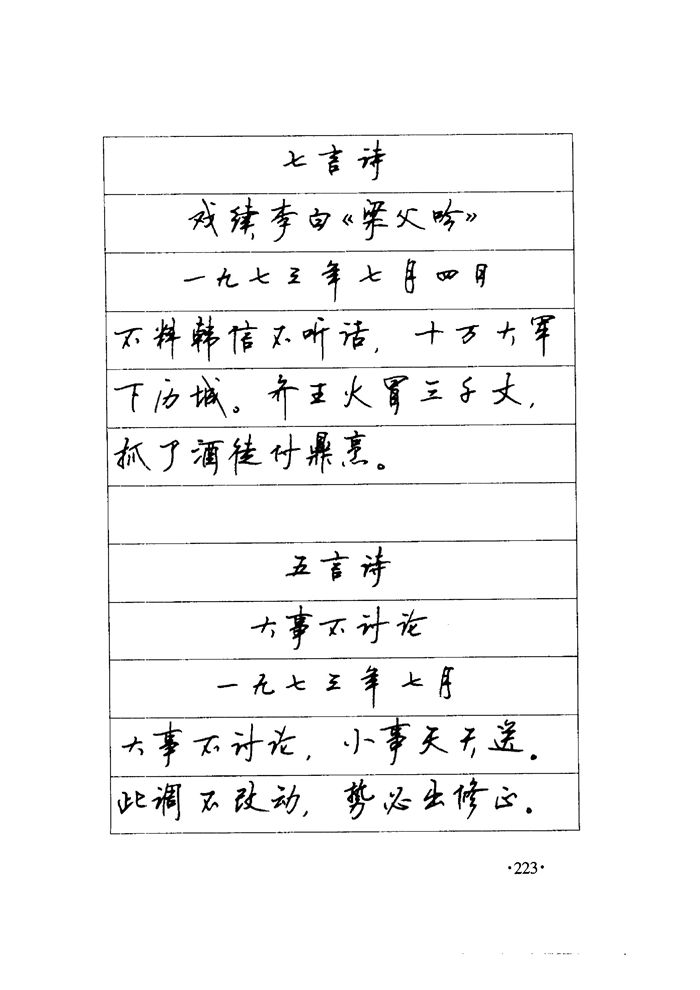 七言诗
戏续李白《梁父吟》
一九七三年七月四日
不料韩信不听话，十万大军
下历城。齐王火冒三千丈，
抓了酒徒付鼎烹。
五言诗
大事不讨论
一九七三年七月
大事不讨论，小事天天送。
此调不改动，势必出修正。
·223·